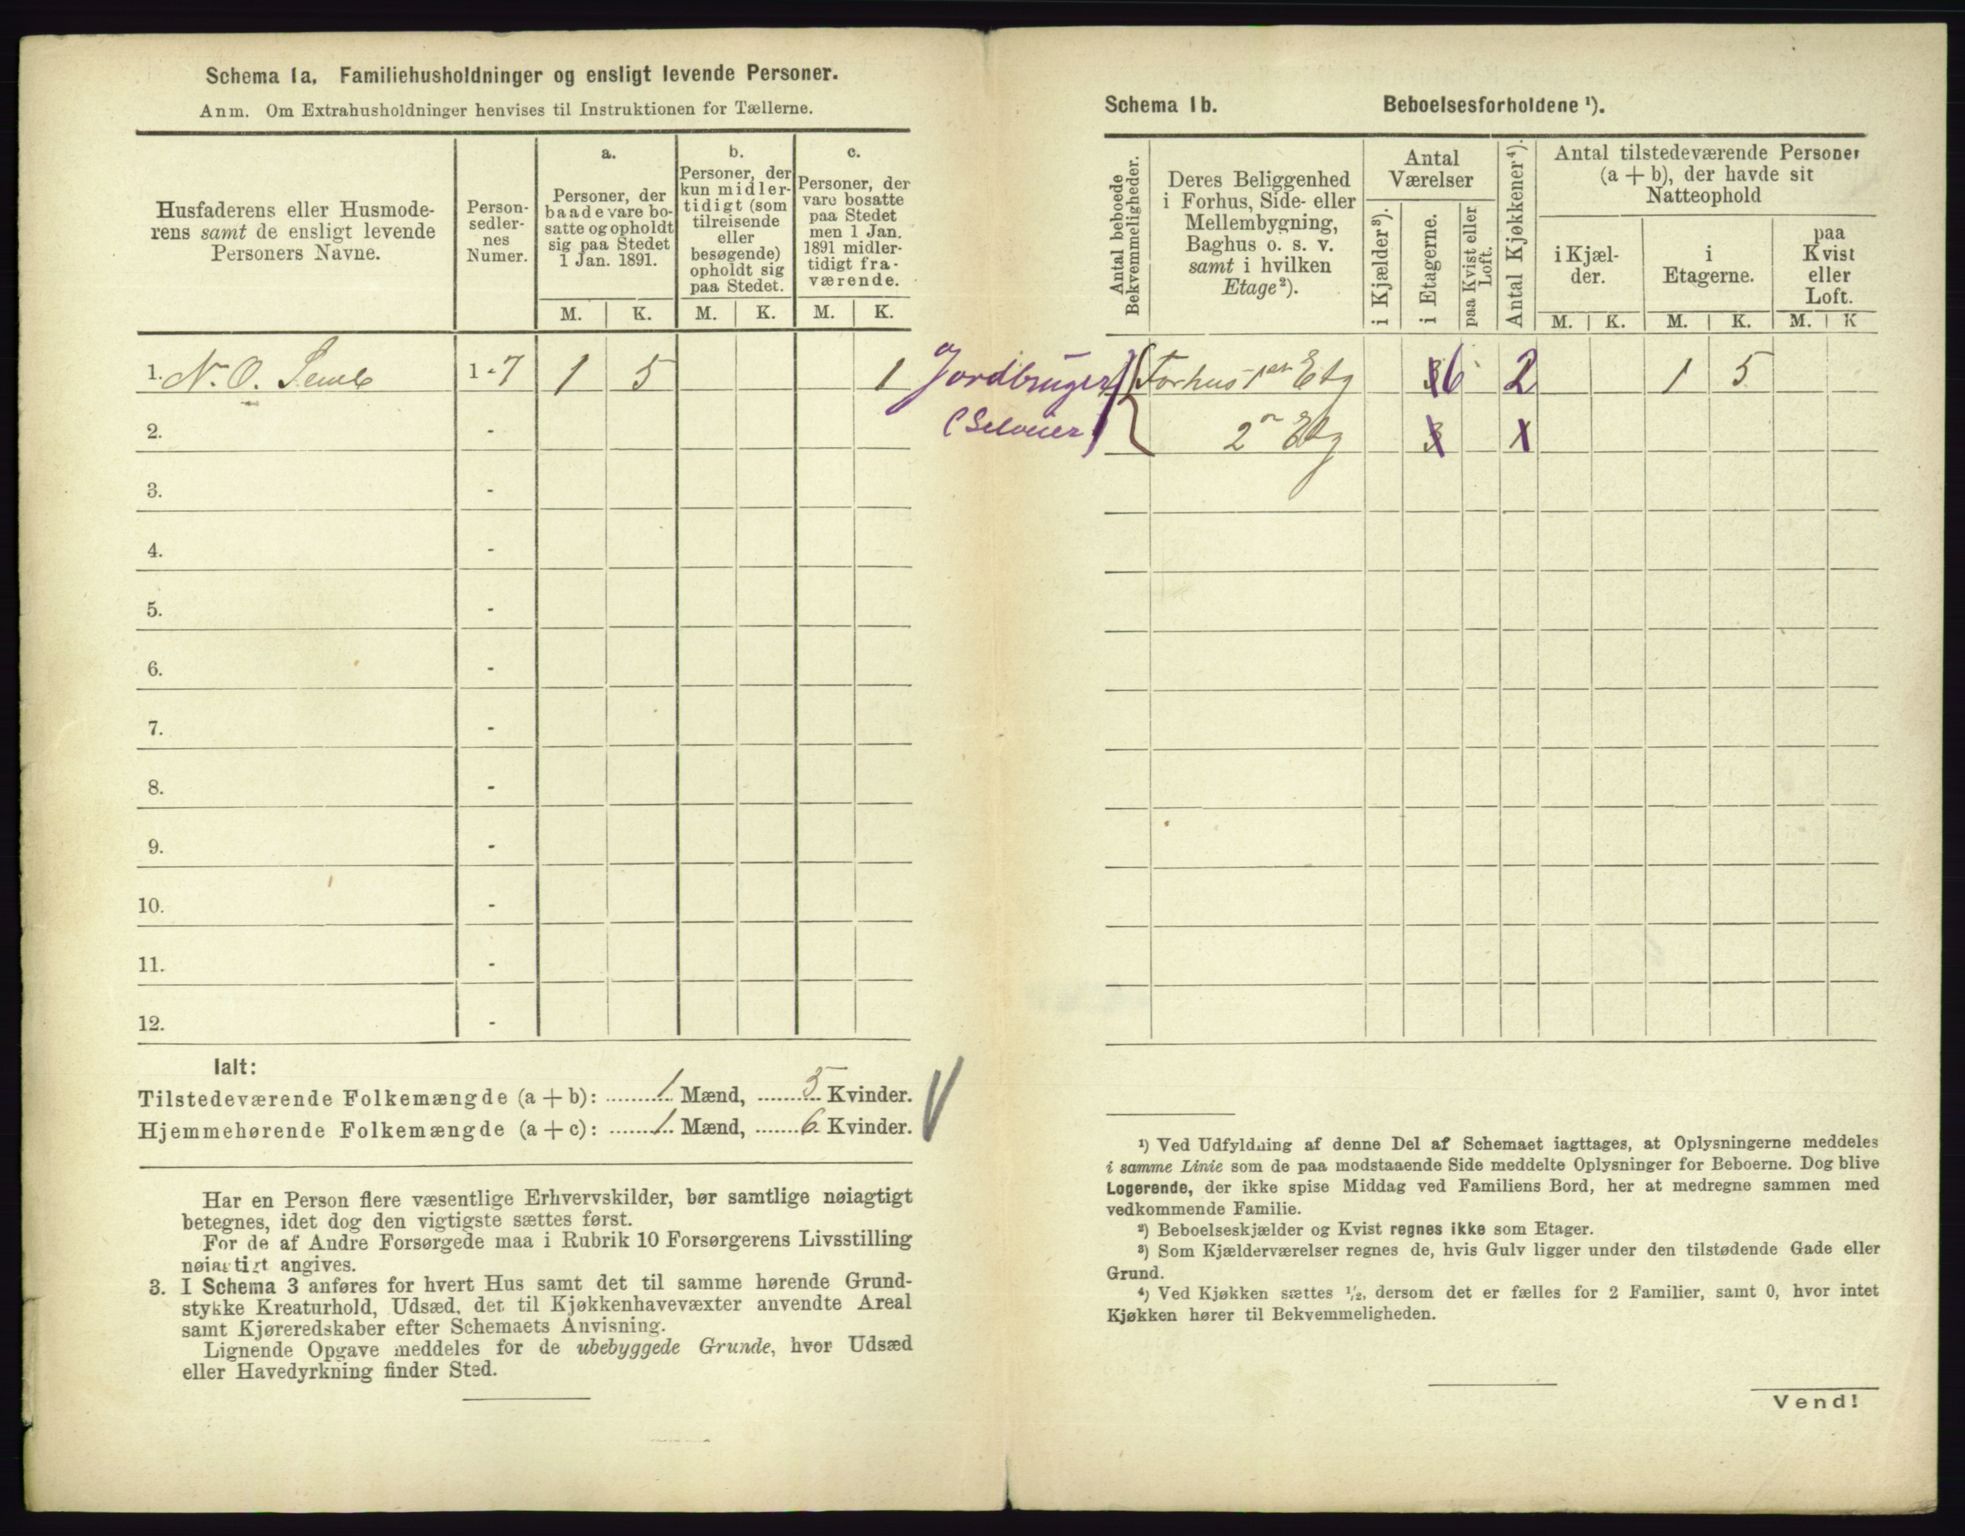 Schema 1a. Familiehusholdninger og ensligt levende Personer.
Anm. Om Extrahusholdninger henvises til Instruktionen for Tællerne.
Husfaderens eller Husmode-
rens samt de ensligt levende
Personers Navne.
Person-
sedler-
nes
Numer.
a.
Personer, der
baade vare bo-
satte og opholdt
sig paa Stedet
1 Jan. 1891.
b.
Personer, der
kun midler-
tidigt (som
tilreisende
eller
besøgende)
opholdt sig
paa Stedet.
c.
Personer, der
vare bosatte
paa Stedet
men 1 Jan.
1891 midler-
tidigt fra-
værende.
M. K. M. K. M. K.
1. N. O. Semb 1-7 1 5 1
2. -
3. -
4. -
5. -
6. -
7. -
8. -
9. -
10. -
11. -
12. -
Ialt:
Tilstedeværende Folkemængde (a + b): 1 Mænd, 5 Kvinder.
Hjemmehørende Folkemængde (a + c): 1 Mænd, 6 Kvinder.
Har en Person flere væsentlige Erhvervskilder, bør samtlige nøiagtigt
betegnes, idet dog den vigtigste sættes først.
For de af Andre Forsørgede maa i Rubrik 10 Forsørgerens Livsstilling
nøiagtigt angives.
3. I Schema 3 anføres for hvert Hus samt det til samme hørende Grund-
stykke Kreaturhold, Udsæd, det til Kjøkkenhavevæxter anvendte Areal
samt Kjøreredskaber efter Schemaets Anvisning.
Lignende Opgave meddeles for de ubebyggede Grunde, hvor Udsæd
eller Havedyrkning finder Sted.
Schema 1b. Beboelsesforholdene ¹).
Antal beboede
Bekvemmeligheder.
Deres Beliggenhed
i Forhus, Side- eller
Mellembygning,
Baghus o. s. v.
samt i hvilken
Etage²).
Antal
Værelser
i Kjælder³).
i Etagerne.
paa Kvist eller
Loft.
Antal Kjøkkener⁴).
Antal tilstedeværende Personer
(a + b), der havde sit
Natteophold
i Kjæl-
der.
i
Etagerne.
paa
Kvist
eller
Loft.
M. K. M. K. M. K
Jordbruger Forhus 1ste Etg 3 6 2 1 5
(Selveier) 2n Etg 3 1
¹) Ved Udfyldning af denne Del af Schemaet iagttages, at Oplysningerne meddeles
i samme Linie som de paa modstaaende Side meddelte Oplysninger for Beboerne. Dog blive
Logerende, der ikke spise Middag ved Familiens Bord, her at medregne sammen med
vedkommende Familie.
²) Beboelseskjælder og Kvist regnes ikke som Etager.
³) Som Kjælderværelser regnes de, hvis Gulv ligger under den tilstødende Gade eller
Grund.
⁴) Ved Kjøkken sættes ½, dersom det er fælles for 2 Familier, samt 0, hvor intet
Kjøkken hører til Bekvemmeligheden.
Vend!